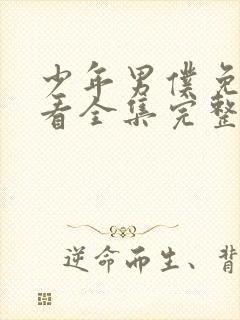 少年男僕免
看全集完整
逆命而生、背